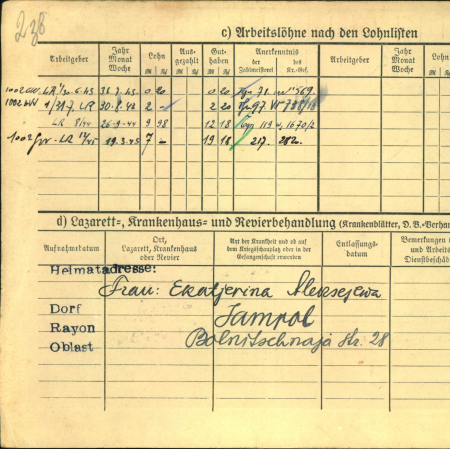 236
c) Arbeitslöhne nach den Lohnlisten
Arbeitgeber Jahr Monat Woche Lohn Aus- gezahlt Gut- haben Anerkenntnis der Zahlmeisterei des Kr.-Gef. Arbeitgeber Jahr Monat Woche Lohn
ℛℳ ₰ ℛℳ ₰ ℛℳ ₰
31.7.43 0 20 0 20 71. 569
1/31.7. LR 30.8.44 2 - 2 20 97
LR 8/44 26-9-44 9 98 12 18 119 1670/2
1002 LR 19.3.45 7 - 19 18 217. 282.
d) Lazarett-, Krankenhaus- und Revierbehandlung (Krankenblätter, D. B.-Verhan
Aufnahmedatum Ort, Lazarett, Krankenhaus oder Revier Art der Krankheit und ob auf dem Kriegsschauplatz oder in der Gefangenschaft erworben Entlassungs- datum Bemerkungen und Arbeits Dienstbeschä
Heimatadresse:
Frau: Ekatjerina Aleksejewa
Dorf Jampol
Rayon Bolnitschnaja Str. 28
Oblast